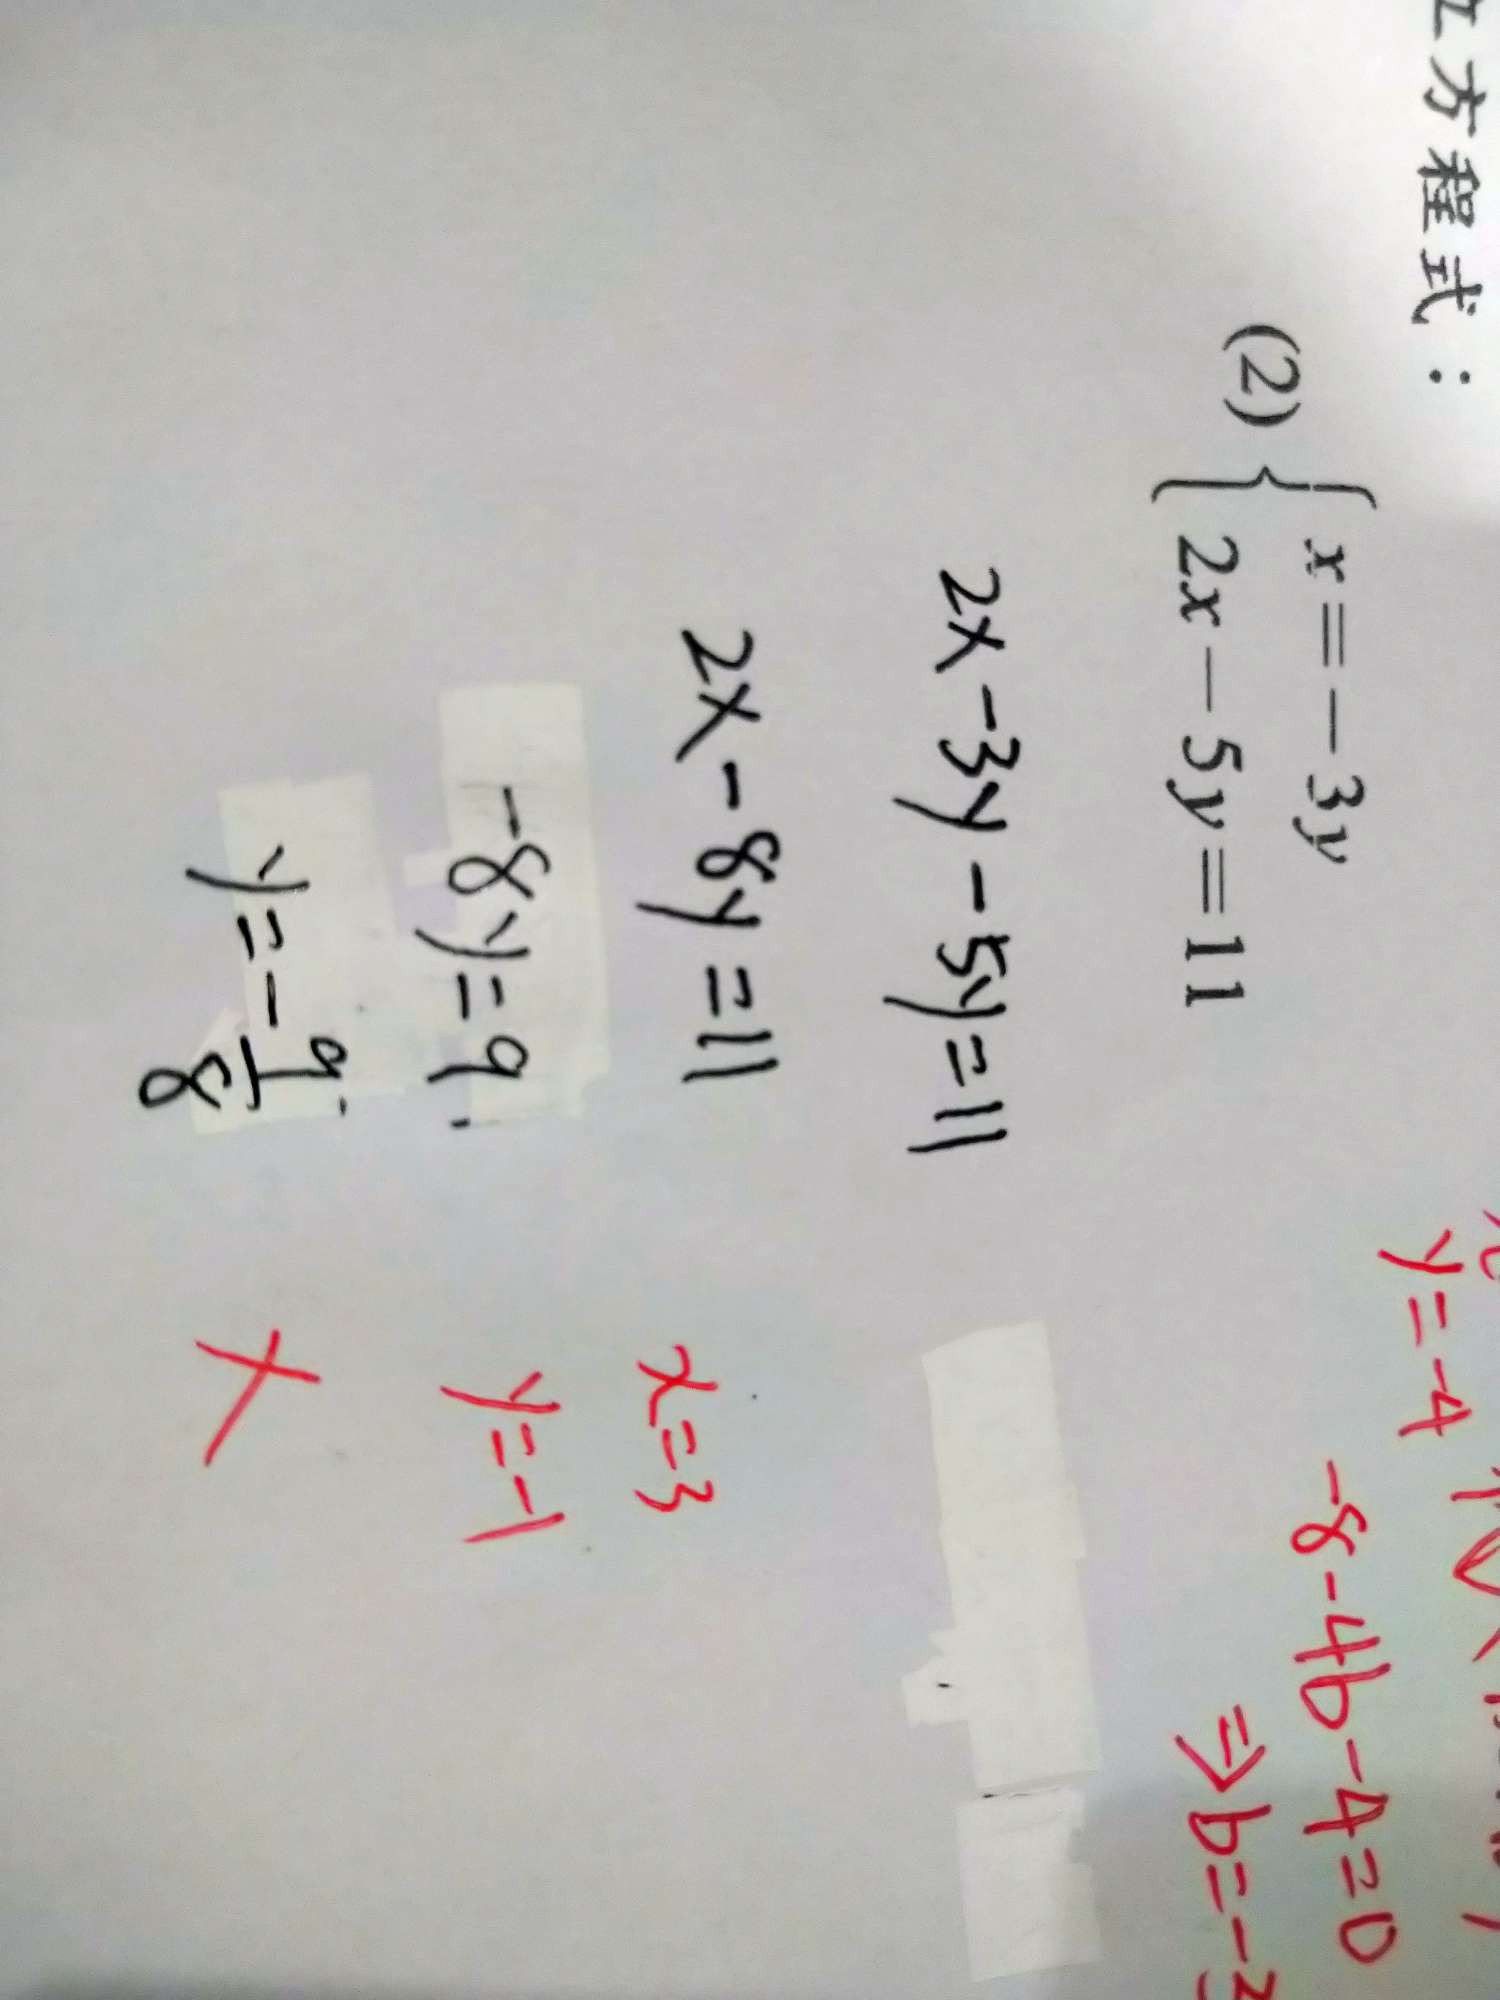 方程式：
(2) { x = −3y
2x − 5y = 11
2x -3y -5y=11
2x -8y =11
-8y=9
y=-9/8
x=3
y=-1
y=-4
-8-4b-4=0
⇒b=-3